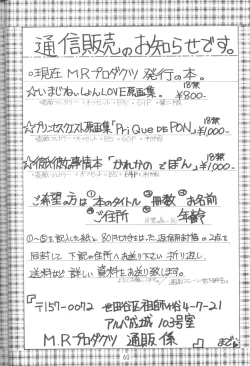 通信販売のお知らせです。
○現在 M.R プロダクツ 発行の本。
☆いまじねぃしょんLOVE原画集。 18禁 ¥800-
☆プリンセスクエスト原画集「PriQue DE PON」 18禁 ¥1,000-
18禁 ¥1,000-
ご希望の方は ①本のタイトル ②冊数 ③お名前
④ご住所 ⑤年齢
①〜⑤を記入した紙と 80円切手をはった返信用封筒の2点を
同封して 下記の住所へお送り下さい。折り返し、
送料など詳しい資料をお送り致します。
〒157-0072 世田谷区祖師谷4-7-21
アルパ成城 103号室
M.R プロダクツ 通販係